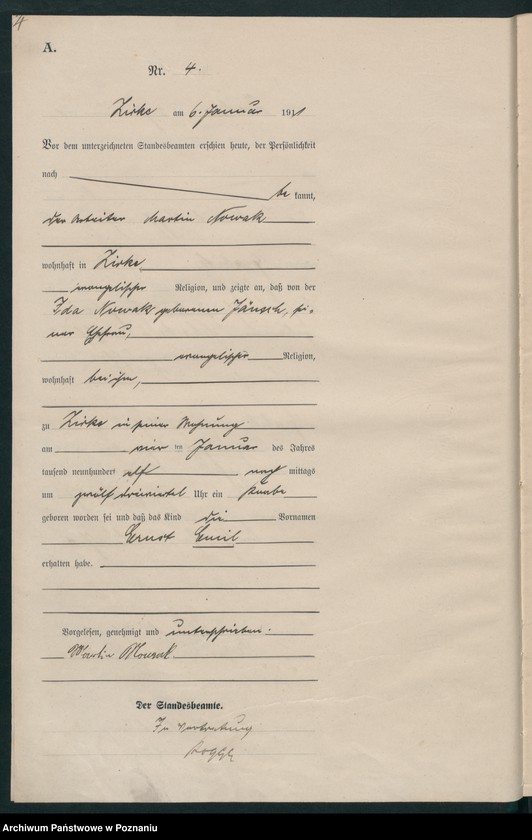 4
A.
Nr. 4.
Zirke am 6. Januar 1911
Vor dem unterzeichneten Standesbeamten erschien heute, der Persönlichkeit
nach
be kannt,
der Arbeiter Martin Nowak
wohnhaft in Zirke
evangelischer Religion, und zeigte an, daß von der
Ida Nowak geborenen Jänsch, sei-
ner Ehefrau,
evangelischer Religion,
wohnhaft bei ihm,
zu Zirke in seiner Wohnung
am vier ten Januar des Jahres
tausend neunhundert elf nach mittags
um zwölf dreiviertel Uhr ein Knabe
geboren worden sei und daß das Kind die Vornamen
Ernst Emil
erhalten habe.
Vorgelesen, genehmigt und unterschrieben.
Martin Nowak
Der Standesbeamte.
In Vertretung
Archiwum Państwowe w Poznaniu